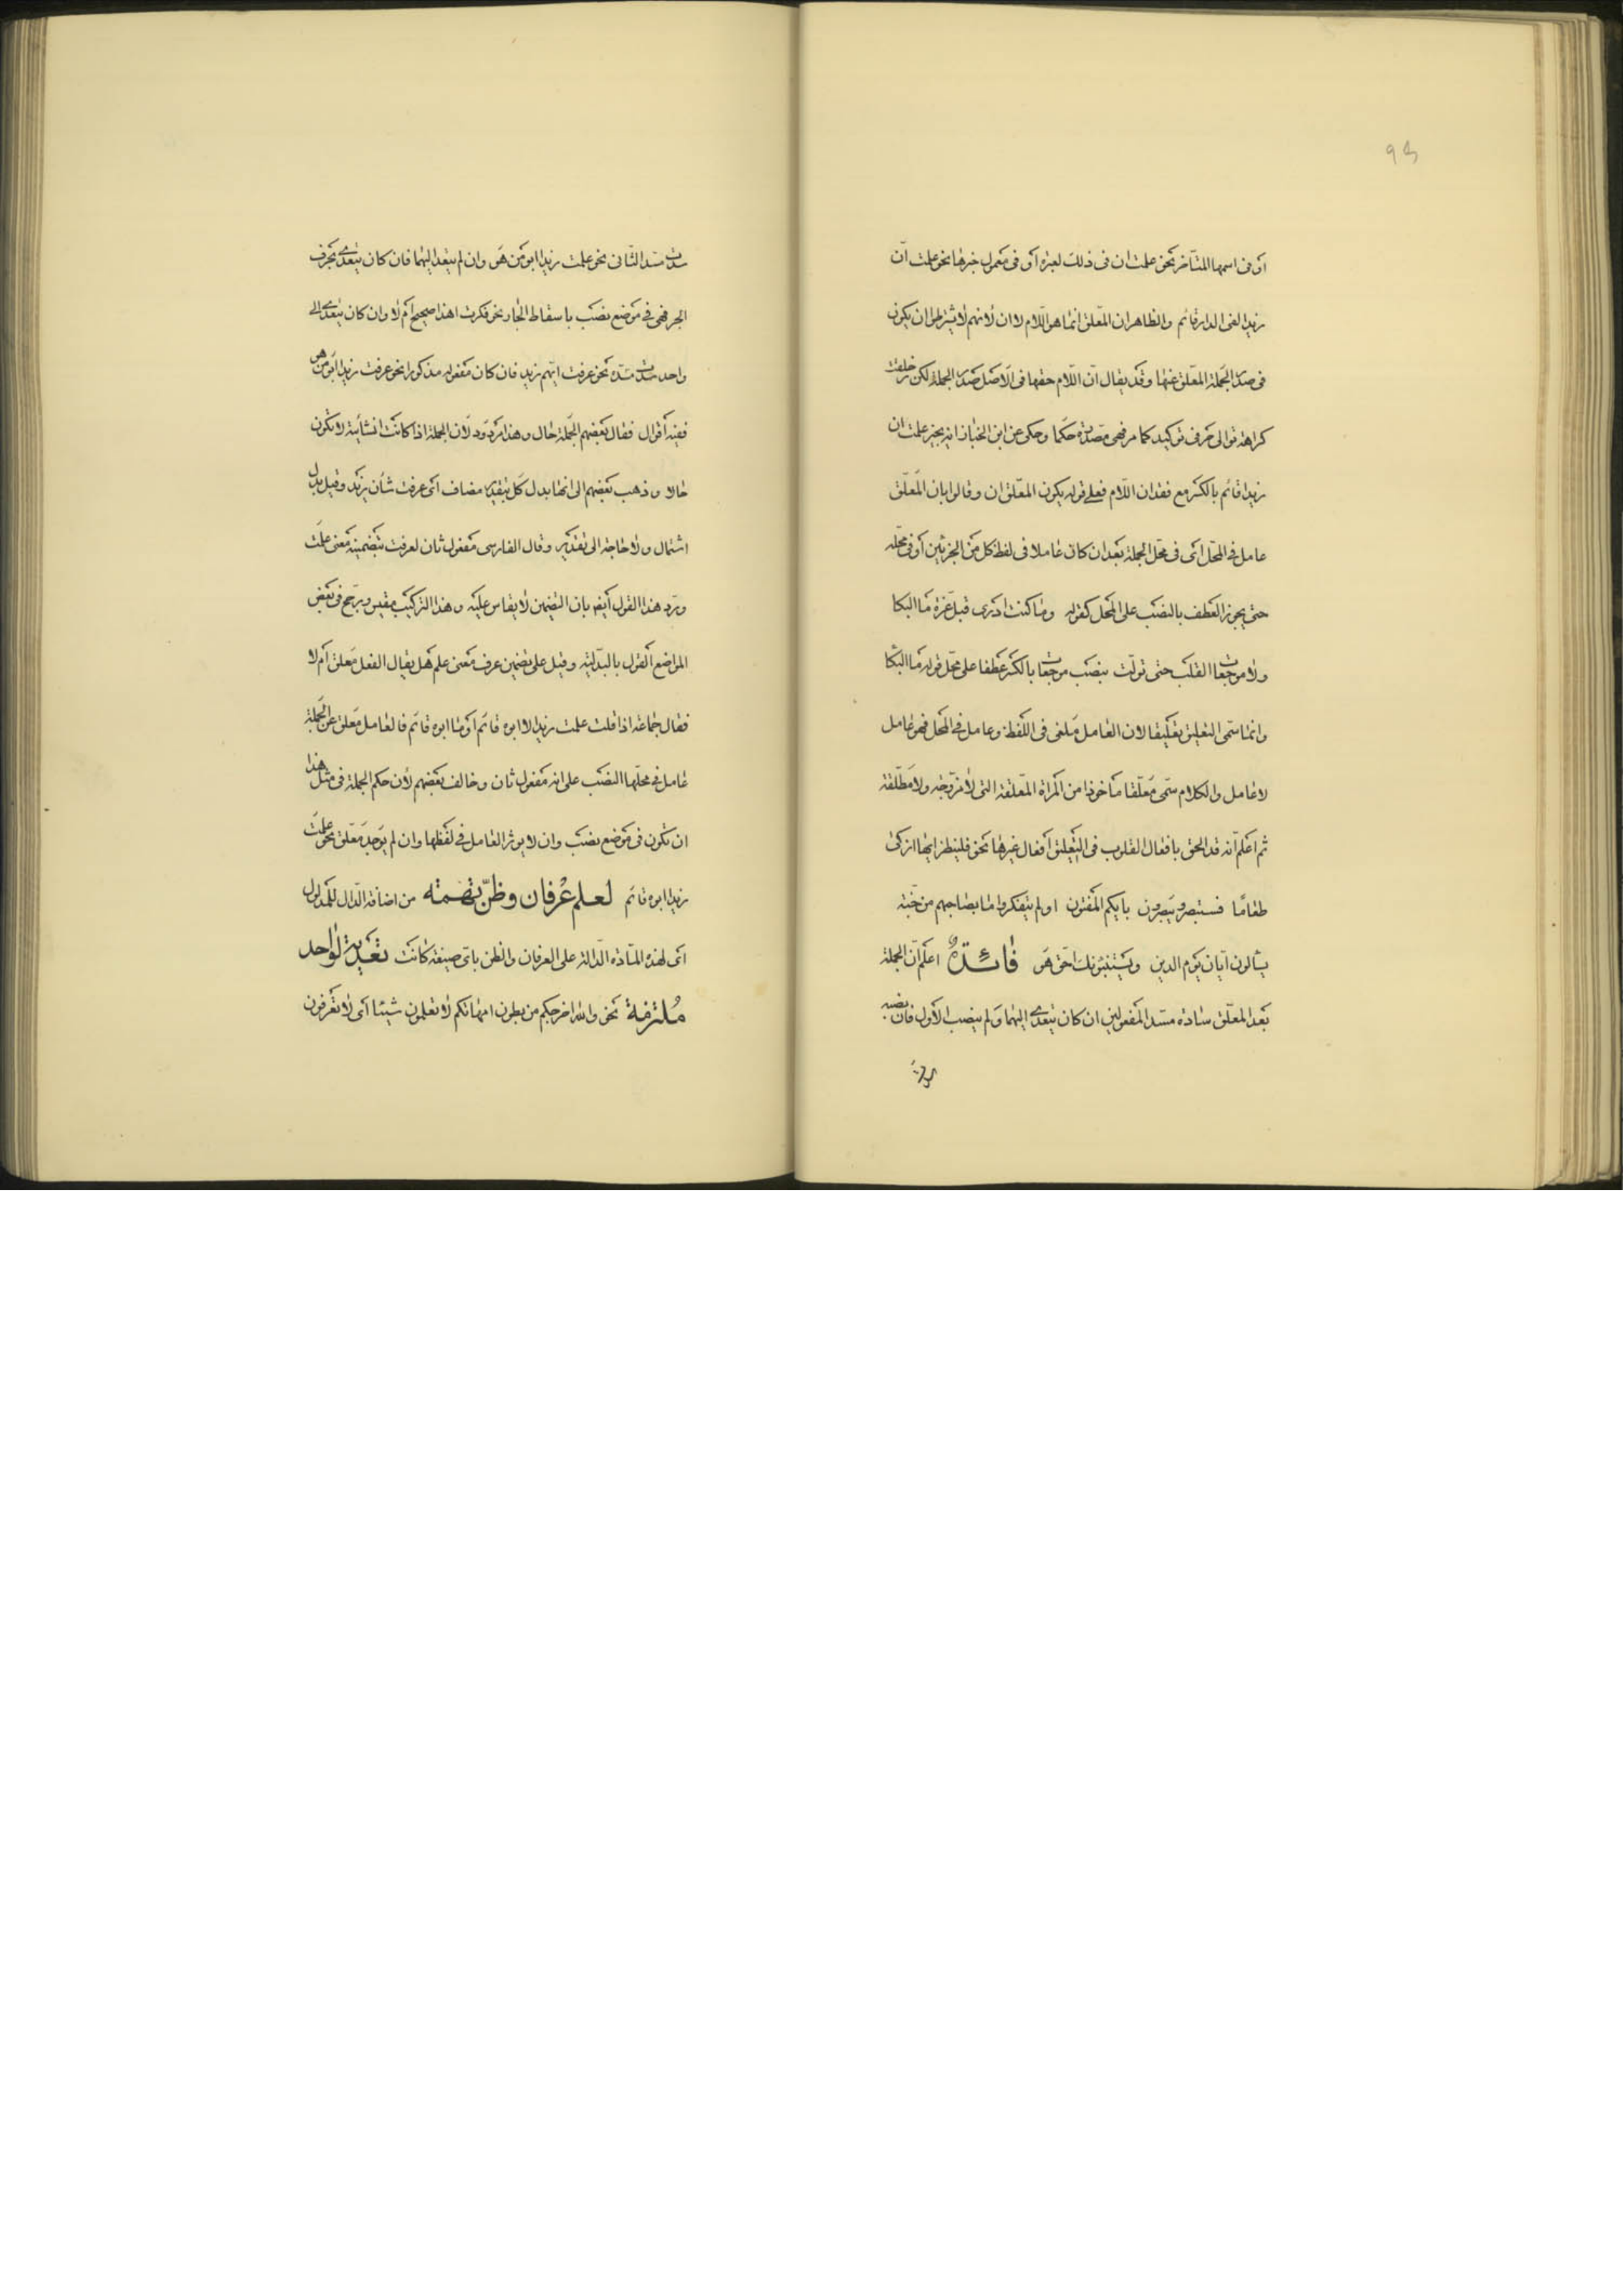 ٩٣
او فى اسمها المتأخر نحو علمت ان فى ذلك لعبرة او فى معمول خبرها نحو علمت ان
زيدا لفى الدار قائم والظاهر ان المعلق انما هو اللام لا ان لانهم لا يشترطون ان يكون
فى صدر الجملة المعلق عنها وقد يقال ان اللام حقها فى الاصل صدر الجملة لكن زحلقت
كراهة توالى حرفى توكيد كما مر فهى متصدرة حكما وحكى عن ابن الخباز انه يجيز علمت ان
زيدا قائم بالكسر مع فقدان اللام فعلى قوله يكون المعلق ان وقالوا بان المعلق
عامل فى المحل اى فى محل الجملة بعد ان كان عاملا فى لفظ كل من الجزئين او فى محله
حتى يجوز العطف بالنصب على المحل كقوله وما كنت ادرى قبل عزة ما البكا
ولا موجعات القلب حتى تولت بنصب موجعات بالكسر عطفا على محل قوله ما البكا
وانما سمى التعليق تعليقا لان العامل ملغى فى اللفظ وعامل فى المحل فهو عامل
لا عامل والكلام سمى معلقا ماخوذا من المراة المعلقة التى لا مزوجة ولا مطلقة
ثم اعلم انه قد الحق بافعال القلوب فى التعليق افعال غيرها نحو فلينظر ايها ازكى
طعاما فستبصر ويبصرون بايكم المفتون اولم يتفكروا ما بصاحبهم من جنة
يسالون ايان يوم الدين ويستنبئونك احق هو فائدة اعلم ان الجملة
بعد المعلق سادة مسد المفعولين ان كان يتعدى اليهما ولم ينصب الاول فان نصبه
سدت
سدت مسد الثانى نحو علمت زيدا ابو من هو وان لم يتعد اليهما فان كان يتعدى بحرف
الجر فهى فى موضع نصب باسقاط الجار نحو فكرت اهذا صحيح ام لا وان كان يتعدى الى
واحد سدت مسده نحو عرفت ايهم زيد فان كان مفعوله مذكورا نحو عرفت زيدا ابو من هو
ففيه اقوال فقال بعضهم الجملة حال وهذا مردود لان الجملة اذا كانت انشائية لا تكون
حالا وذهب بعضهم الى انها بدل كل بتقدير مضاف اى عرفت شان زيد وقيل بدل
اشتمال ولا حاجة الى تقدير وقال الفارسى مفعول ثان لعرفت بتضمينه معنى علمت
ورد هذا القول ايضا بان التضمين لا يقاس عليه وهذا التركيب مقيس ويرجح فى بعض
المواضع القول بالبدلية وقيل على تضمين عرف معنى علم هل يقال الفعل معلق ام لا
فقال جماعة اذا قلت علمت زيدا لا ابوه قائم او ما ابوه قائم فالعامل معلق عن الجملة
عامل فى محلها النصب على انه مفعول ثان وخالف بعضهم لان حكم الجملة فى مثل هذا
ان تكون فى موضع نصب وان لا يوثر العامل فى لفظها وان لم يوجد معلق نحو علمت
زيدا ابوه قائم لعلم عرفان وظن تهمه من اضافة الدال للمدلول
اى لهذه المادة الدالة على العرفان والظن باى صيغة كانت تعدية لواحد
ملتزمة نحو والله اخرجكم من بطون امهاتكم لا تعلمون شيئا اى لا تعرفون